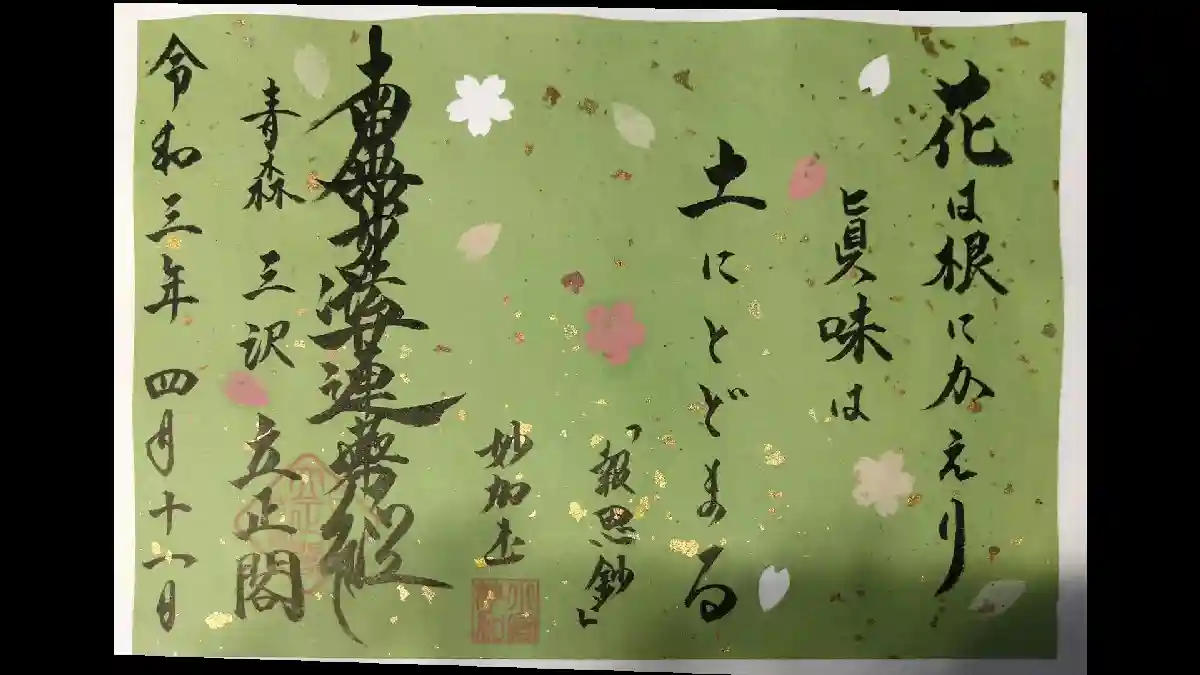 花は根にかえり
眞味は
土にとどまる
「報恩鈔」
妙加
南無妙法蓮華経
青森 三沢 立正閣
令和三年 四月十六日